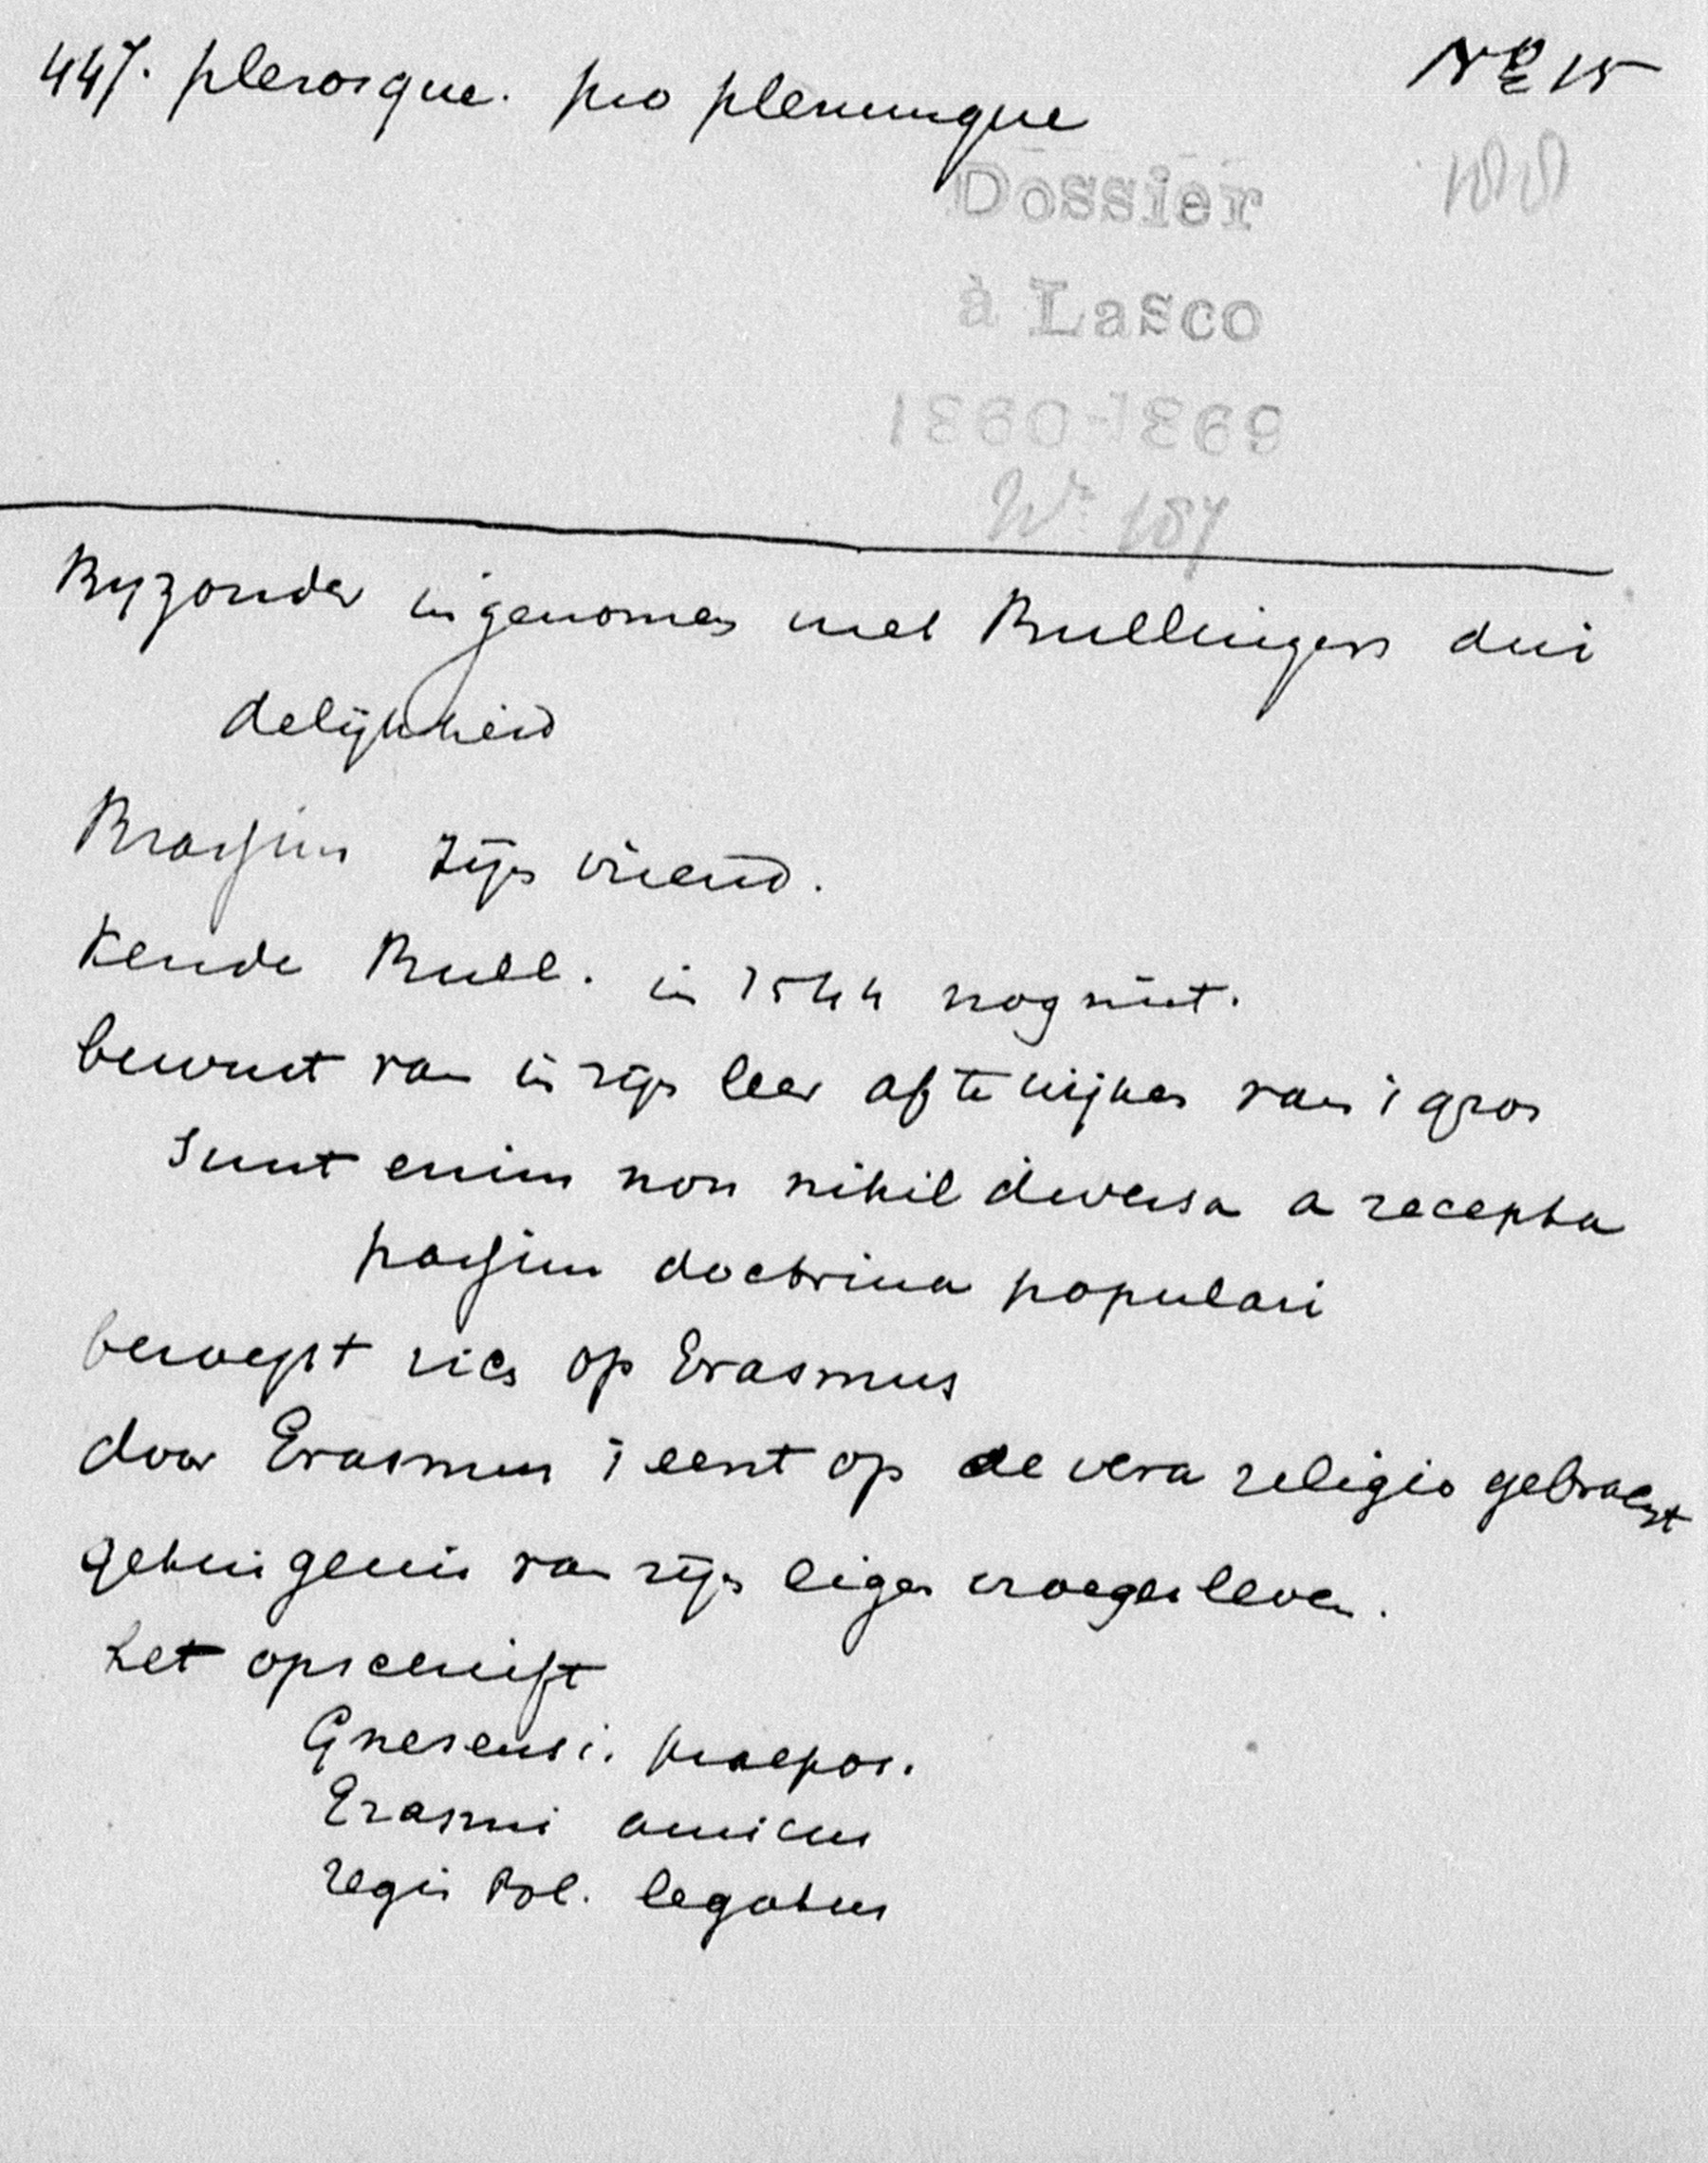 447. plerosque. pro plerumque
No 15
Dossier
à Lasco
1860-1869
No 157
Byzonder ingenomen met Bullingers dui
delijkheid
Brassius zijn vriend.
Kende Bull. in 1544 nog niet.
bewust van in zijn leer af te wijken van 't gros
sunt enim non nihil diversa a recepta
passim doctrina populari
beroept zich op Erasmus
door Erasmus 't eerst op de vera religio gebracht
getuigenis van zijn eigen vroeger leven.
het opschrift
Gnesensi. praepos.
Erasmi amicus
regis Pol. legatus